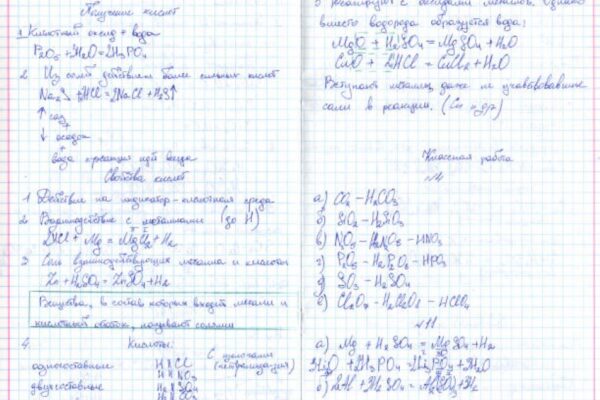 Получение кислот
1 Кислотный оксид + вода
P₂O₅ + 3H₂O = 2H₃PO₄
2 Из солей действием более сильных кислот
Na₂S + 2HCl = 2NaCl + H₂S↑
↑ газ
↓ осадок
вода реакция идёт всегда
Свойства кислот
1 Действие на индикатор - кислотная среда
2 Взаимодействие с металлами (до H)
2HCl + Mg = MgCl₂ + H₂
3 Соль взаимодействующих металла и кислоты
Zn + H₂SO₄ = ZnSO₄ + H₂
Вещества, в состав которых входят металл и
кислотный остаток, называют солями
4. Кислоты: С щелочами
одноосновные H Cl (нейтрализация)
H NO₃
двухосновные H₂ SO₄
H₂ SO₃
с оксидами металлов, однако
вместо водорода образуется вода:
MgO + H₂SO₄ = MgSO₄ + H₂O
CuO + 2HCl = CuCl₂ + H₂O
Вступают металлы, даже не участвовавшие
сами в реакции. (Cu и др)
Классная работа
а) CO₂ - H₂CO₃
б) SiO₂ - H₂SiO₃
в) NO₅ - H₂N₂O₆ - HNO₃
г) P₂O₅ - H₂P₂O₆ - HPO₃
д) SO₃ - H₂SO₄
е) Cl₂O₇ - H₂Cl₂O₈ - HClO₄
№11
а) Mg + H₂SO₄ = MgSO₄ + H₂
3Li₂O + 2H₃PO₄ = 2Li₃PO₄ + 3H₂O
б) 2Al + 3H₂SO₄ = Al₂(SO₄)₃ + 3H₂